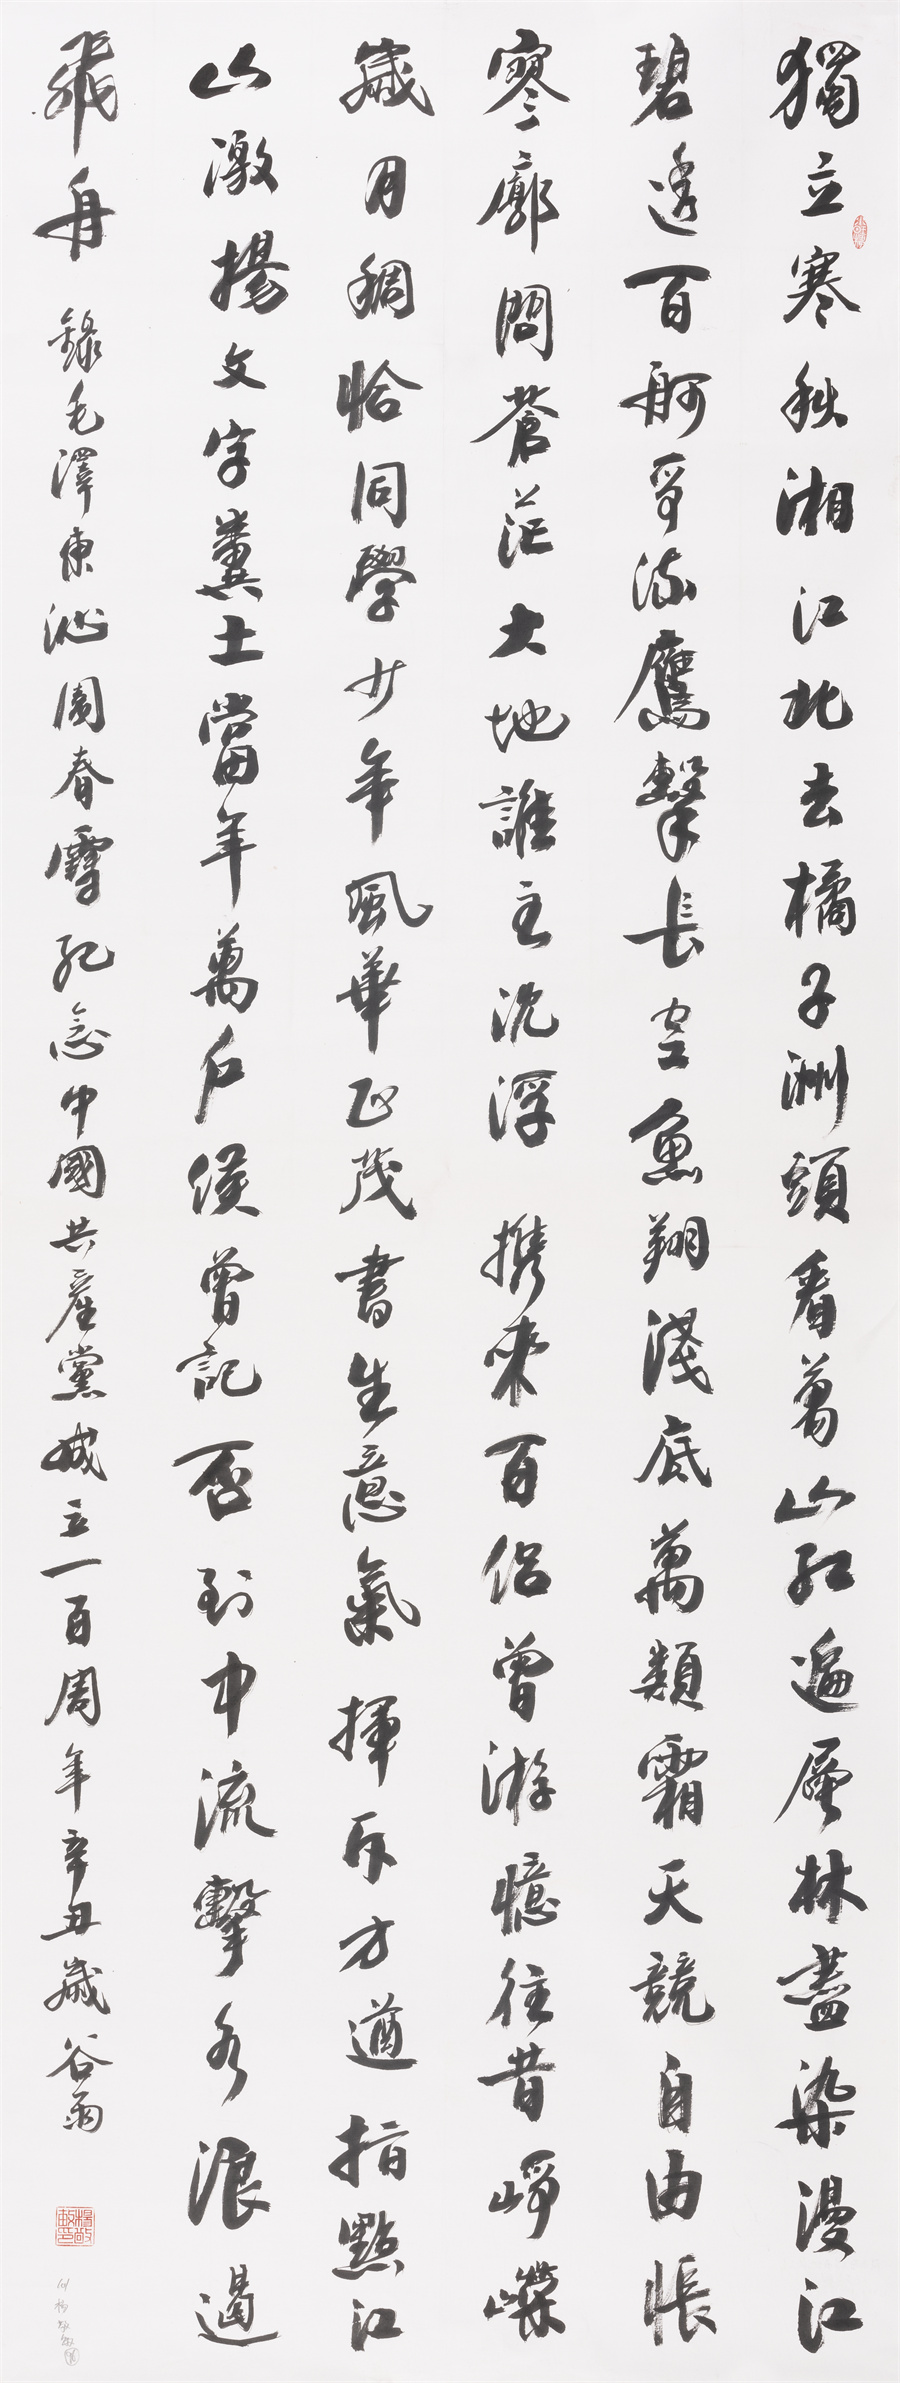 獨立寒秋湘江北去橘子洲頭看萬山紅遍層林盡染漫江
碧透百舸爭流鷹擊長空魚翔淺底萬類霜天競自由悵
寥廓問蒼茫大地誰主沉浮 携來百侶曾游憶往昔崢嶸
歲月稠恰同學少年風華正茂書生意氣揮斥方遒指點江
山激揚文字糞土當年萬戶侯曾記否到中流擊水浪遏
飛舟 錄毛澤東沁園春雪紀念中國共產黨成立一百周年辛丑歲谷雨